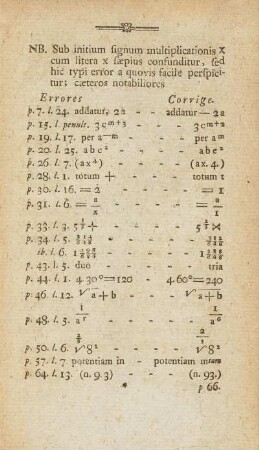 NB. Sub initium signum multiplicationis x
cum litera x sæpius confunditur, sed
hic typi error a quovis facile perspici-
tur; cæteros notabiliores
Errores Corrige.
p. 7. l. 24. addatur, 2a - - addatur — 2a
p. 15. l. penult. 3c^{m+2} - - 3c^{m+3}
p. 19. l. 17. per a^{—m} - - per a^{m}
p. 20. l. 25. abc^{2} - - abc^{2}
p. 26. l. 7. (ax^{4}) - - (ax. 4.)
p. 28. l. 1. totum + - - totum
p. 30. l. 16. = 2 - - = 1
p. 31. l. 6. = a/x - - = a/1
p. 33. l. 3.
p. 34. l. 5.
ib. l. 6.
p. 43. l. 5. duo - - tria
p. 44. l. 1. 4 30°=120 - 4.60°=240
p. 46. l. 12. √a+b - - √a+b
p. 48. l. 5.
p. 50. l. 6. √8^{2} - - √8^{2}
p. 57. l. 7 potentiam in - potentiam m^{tam}
p. 64. l. 13. (n. 9.3) - - (n. 93.)
p 66.